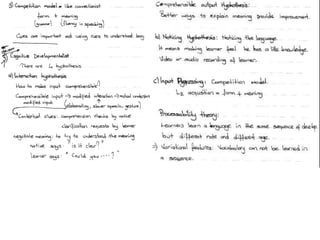 3) Competition model = like connectionist
form + meaning
(grammar) (fluency in speaking)
Cues are important and using cues to understand lang
Cognitive Developmentalist
There are 4 hypothesis
a) Interaction hypothesis
How to make input comprehensible?
Comprehensible input → modified interaction → mutual
modified input (elaborating, slower speech, gesture)
Contextual clues: comprehension checks by native
clarification requests by learner
negotiate meaning: to try to understand the meaning
native says: " is it clear?"
learner says: " Could you ....?"
Comprehensible output Hypothesis:
Better ways to explain meaning provide improvement.
b) Noticing Hypothesis: Noticing the language.
It means making learner feel he has a little knowledge.
Video or audio recording of learner.
c) Input Processing: Competition model.
L2 acquisition = form + meaning
Processability theory:
Learners learn a language in the same sequence of develop
but different rate and different age.
Variational features: Vocabulary can not be learned in
a sequence.